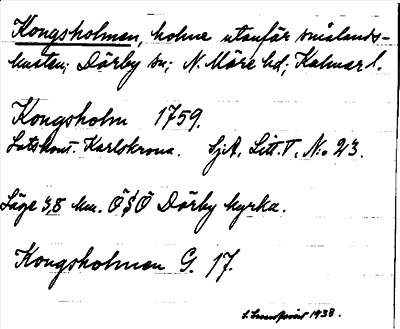 Kongsholmen, holme utanför smålands-
kusten; Dörby sn; N. Möre hd; Kalmar l.
Kongsholm 1759.
Lotskont. Karlskrona. SjA, Litt. T, No 23.
Läge 3,8 km. Ö§Ö Dörby kyrka.
Kongsholmen G. 17.
1938.